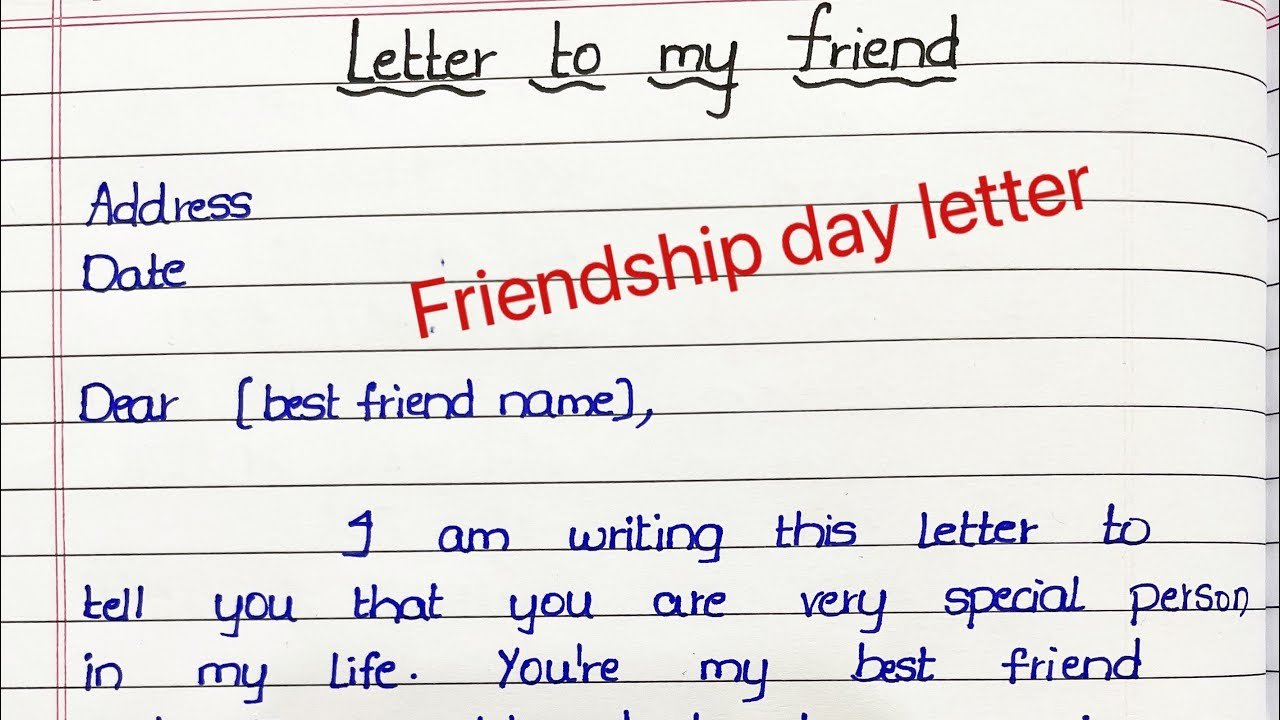 Letter to my friend
Address
Friendship day letter
Date
Dear [best friend name],
I am writing this letter to
tell you that you are very special person
in my life. You're my best friend